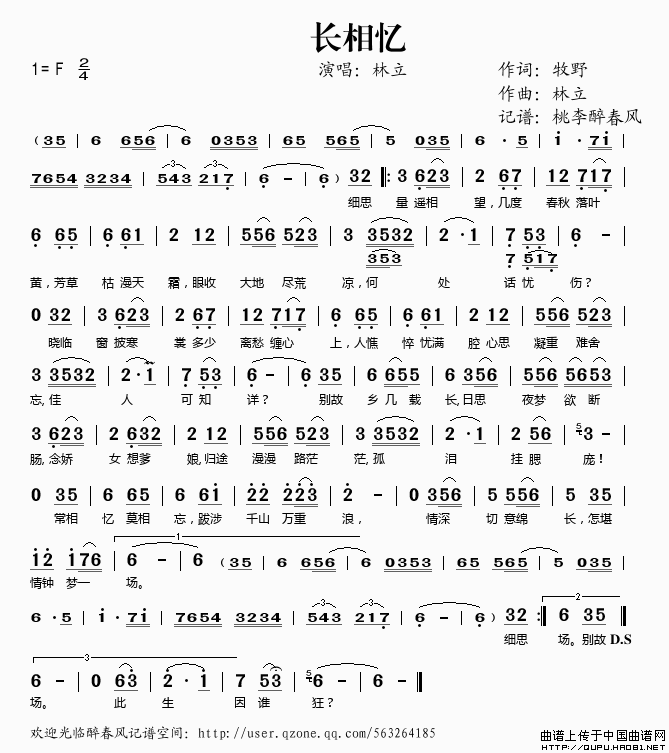 长相忆
1= F 2/4
演唱：林立
作词：牧野
作曲：林立
记谱：桃李醉春风
（35 | 6 656 | 6 0353 | 65 565 | 5 035 | 6 · 5 | i · 7i |
7654 3234 | 543 217 | 6 - | 6 ） 32 |: 3 623 | 2 67 | 12 717 |
细思 量 遥相 望，几度 春秋 落叶
6 65 | 6 61 | 2 12 | 556 523 | 3 3532 | 2 · 1 | 7 53 | 6 - |
353 7 517
黄，芳草 枯 漫天 霜，眼收 大地 尽荒 凉，何 处 话 忧 伤？
0 32 | 3 623 | 2 67 | 12 717 | 6 65 | 6 61 | 2 12 | 556 523 |
晓临 窗 披寒 裳 多少 离愁 缠心 上，人憔 悴 忧满 腔 心思 凝重 难舍
3 3532 | 2 · 1 | 7 53 | 6 - | 6 35 | 6 655 | 6 356 | 556 5653 |
忘，佳 人 可 知 详？ 别故 乡 几 载 长，日思 夜梦 欲 断
3 623 | 2 632 | 2 12 | 556 523 | 3 3532 | 2 · 1 | 2 56 | 5 3 - |
肠，念娇 女 想爹 娘，归途 漫漫 路茫 茫，孤 泪 挂 腮 庞！
0 35 | 6 65 | 6 6i | 22 223 | 2 - | 0356 | 5 556 | 5 35 |
常相 忆 莫相 忘，跋涉 千山 万重 浪， 情深 切 意绵 长，怎堪
i2 i76 | 1 6 - | 6 （35 | 6 656 | 6 0353 | 65 565 | 5 035 |
情钟 梦一 场。
6 · 5 | i · 7i | 7654 3234 | 543 217 | 6 - | 6 ） 32 :| 2 6 35 ||
细思 场。别故 D.S
3 6 - | 0 63 | 2 · i | 7 53 | 5 6 - | 6 - ||
场。 此 生 因 谁 狂？
欢迎光临醉春风记谱空间：http://user.qzone.qq.com/563264185
曲谱上传于中国曲谱网
HTTP://QUPU.HAO81.NET